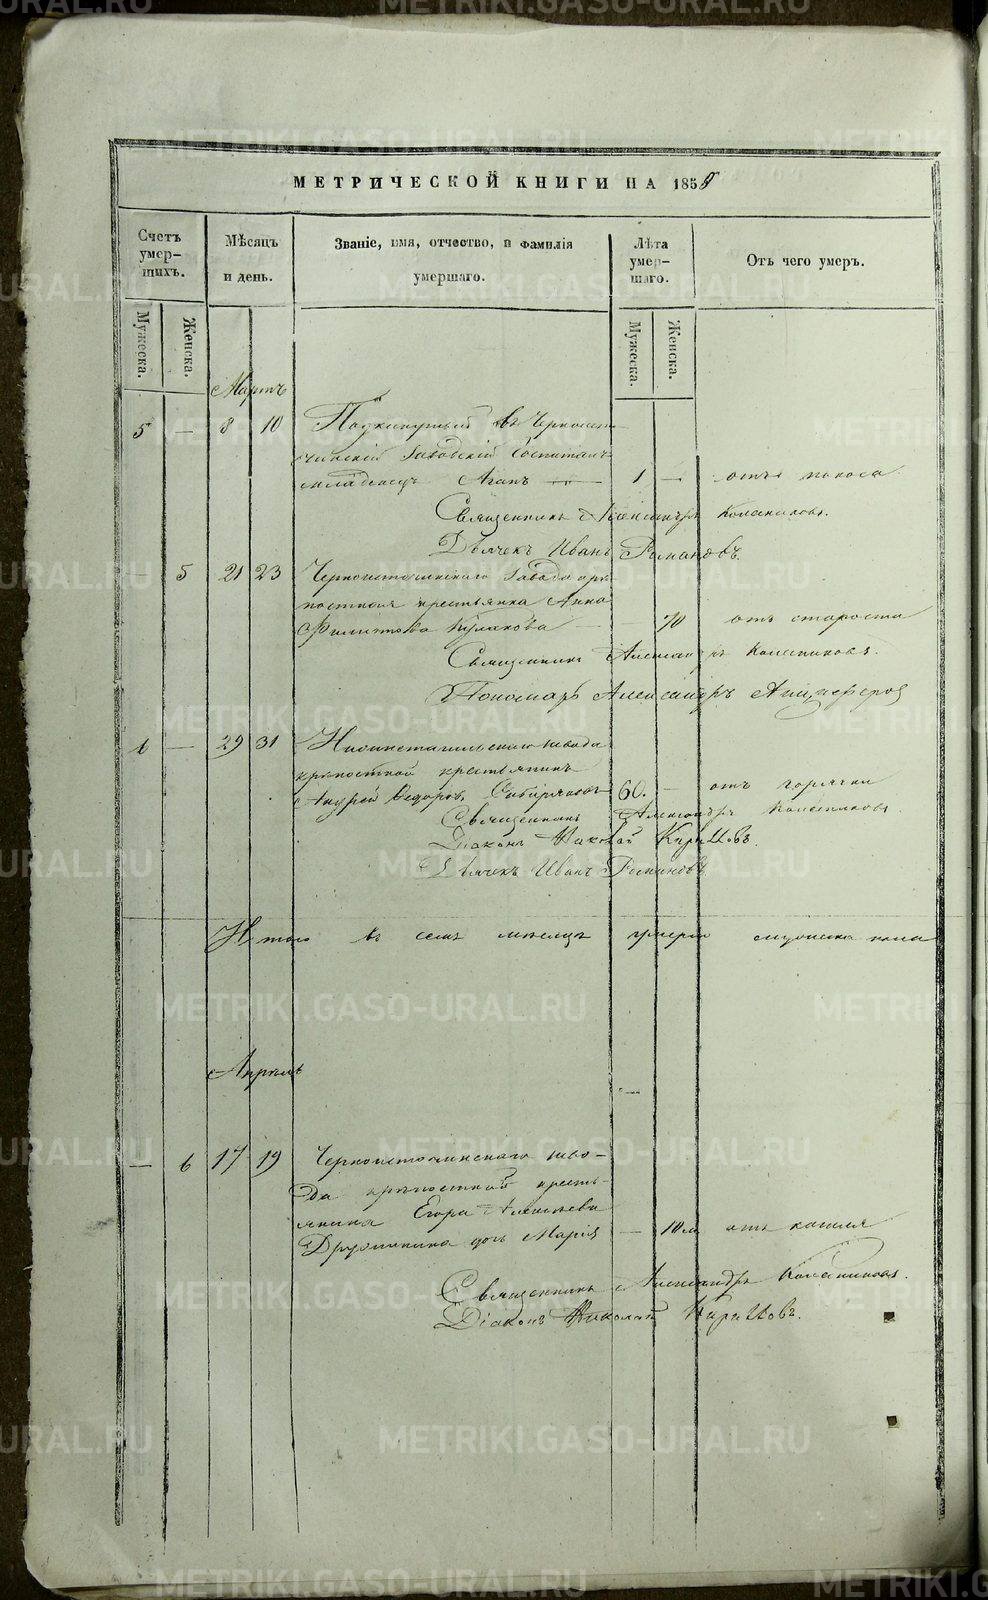 МЕТРИЧЕСКОЙ КНИГИ НА 1858
Счетъ умер-шихъ.
Мѣсяцъ и день.
Званіе, имя, отчество, и фамилія умершаго.
Лѣта умер-шаго.
Отъ чего умеръ.
Мужеска.
Женска.
Мужеска.
Женска.
Мартъ
5 — 8 10 Подкинутый въ Черноис-
точинскій Заводскій Госпиталь
младенецъ Агапъ — 1 — отъ поноса
Священникъ Александръ Колесниковъ.
Дьячекъ Иванъ Романовъ.
— 5 21 23 Черноисточинскаго Завода крѣ-
постная крестьянка Анна
Филиппова Кулакова — 70 отъ старости
Священникъ Александръ Колесниковъ.
Пономарь Александръ
6 — 29 31 завода
крѣпостной крестьянинъ
Андрей Ѳедоровъ 60. — отъ горячки
Священникъ Александръ Колесниковъ
Діаконъ Николай
Дьячекъ Иванъ Романовъ
Итого въ семъ мѣсяцѣ умерло мужеска пола
Апрѣль
— 6 17 19 Черноисточинскаго заво-
да крѣпостнаго кресть-
янина Егора Алексѣева
дочь Марія — 10 м отъ кашля
Священникъ Александръ Колесниковъ.
Діаконъ Николай
METRIKI.GASO-URAL.RU